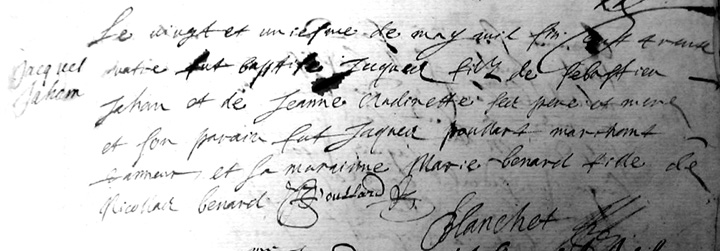 Le vingt et uniesme de may mil six cent trente
Jacques
quatre fut baptisé Jacques filz de Sebastien
Jahan
Jahan et de Jeanne Audinette ses pere et mere
et son parain fut Jaques poullart marchant
tanneur et sa maraine Marie benard fille de
Nicollas benard Poullard
Blanchet